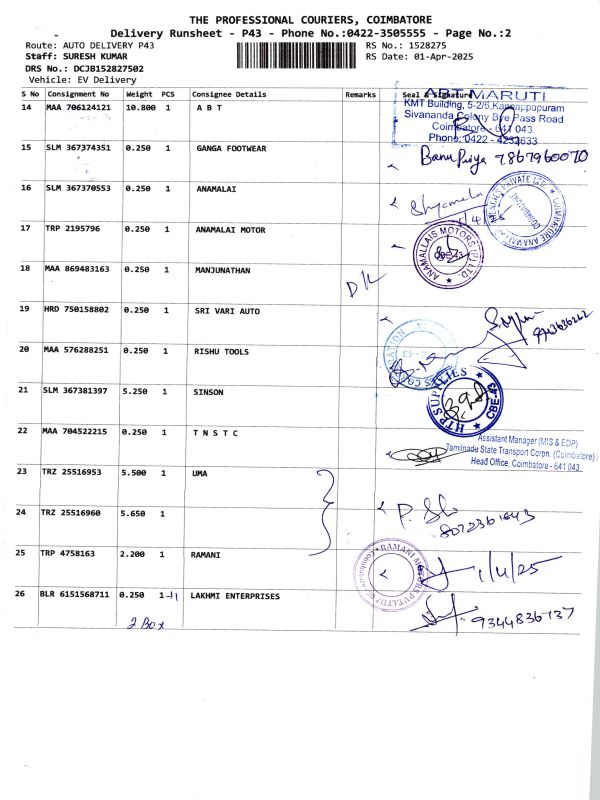 THE PROFESSIONAL COURIERS, COIMBATORE
Delivery Runsheet - P43 - Phone No.:0422-3505555 - Page No.:2
Route: AUTO DELIVERY P43 RS No.: 1528275
Staff: SURESH KUMAR RS Date: 01-Apr-2025
DRS No.: DCJB152827502
Vehicle: EV Delivery
S No Consignment No Weight PCS Consignee Details Remarks Seal & Signature
14 MAA 706124121 10.800 1 A B T
ABT MARUTI
KMT Building, 5-2/6, Kannappapuram
Sivananda Colony Bye Pass Road
Coimbatore - 641 043.
Phone: 0422 - 4232633
15 SLM 367374351 0.250 1 GANGA FOOTWEAR Banu Priya 7867960070
16 SLM 367370553 0.250 1 ANAMALAI Shyamala
17 TRP 2195796 0.250 1 ANAMALAI MOTOR
ANAMALLAIS MOTORS (P) LTD. CBE-43
18 MAA 869483163 0.250 1 MANJUNATHAN D/L
19 HRD 750158802 0.250 1 SRI VARI AUTO
20 MAA 576288251 0.250 1 RISHU TOOLS
21 SLM 367381397 5.250 1 SINSON
HTP SUPPLIES CBE-43
22 MAA 704522215 0.250 1 T N S T C
Assistant Manager (MIS & EDP)
Tamilnadu State Transport Corpn. (Coimbatore)
Head Office, Coimbatore - 641 043.
23 TRZ 25516953 5.500 1 UMA
24 TRZ 25516960 5.650 1
25 TRP 4758163 2.200 1 RAMANI 1/4/25
26 BLR 6151568711 0.250 1 LAKHMI ENTERPRISES
2 Box 9344836737